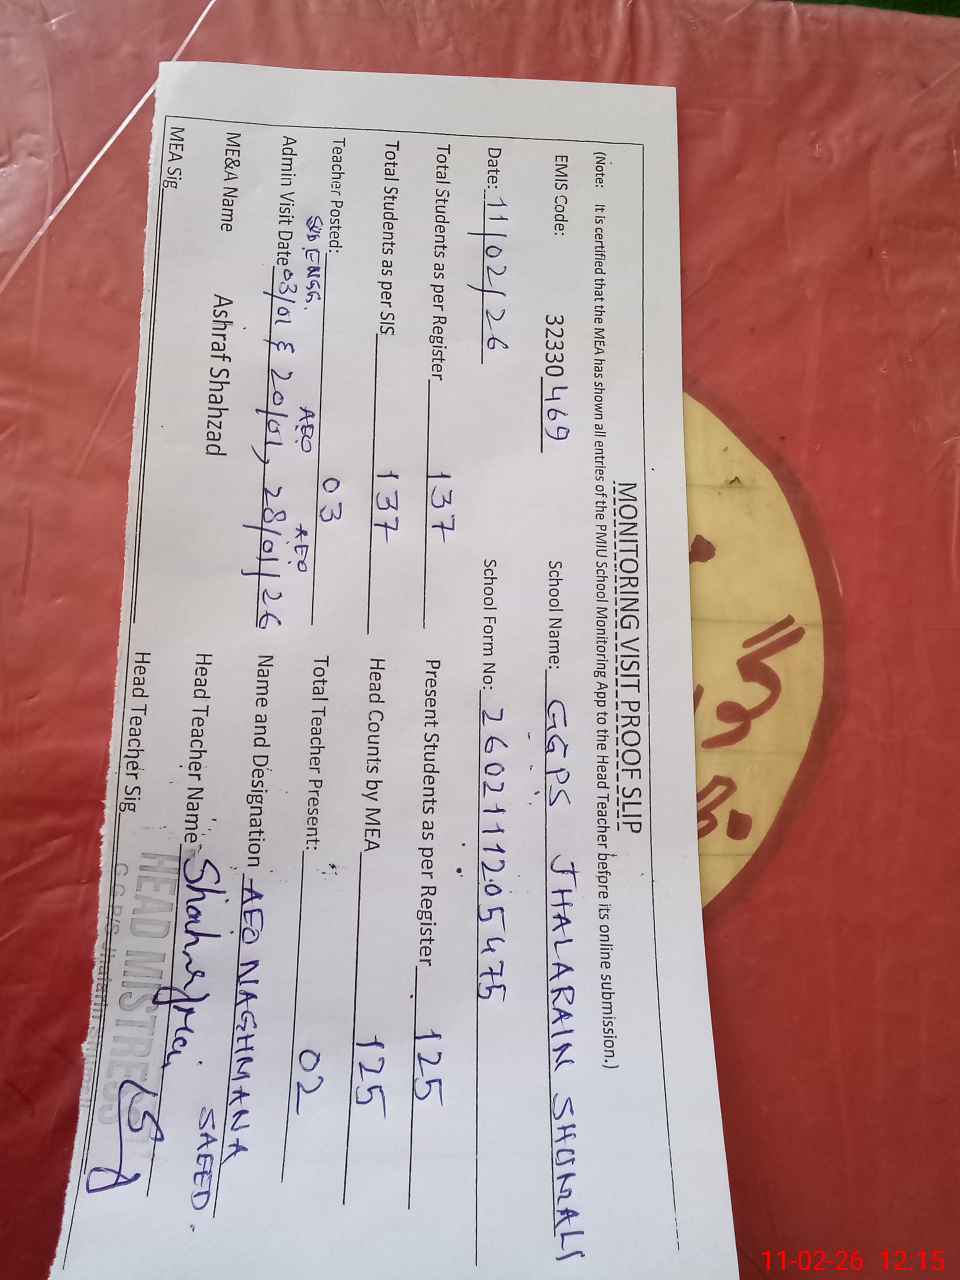 MONITORING VISIT PROOF SLIP
(Note: It is certified that the MEA has shown all entries of the PMIU School Monitoring App to the Head Teacher before its online submission.)
EMIS Code: 32330469 School Name: GGPS JHALARAIN SHUMALI
Date: 11/02/26 School Form No: 26021112054 75
Total Students as per Register 137 Present Students as per Register 125
Total Students as per SIS 137 Head Counts by MEA 125
Teacher Posted: 03 Total Teacher Present: 02
AEO AEO
Admin Visit Date 03/01 & 20/01, 28/01/26 Name and Designation AEO NAGHMANA
SAEED.
ME&A Name Ashraf Shahzad Head Teacher Name
MEA Sig Head Teacher Sig
HEAD MISTRESS
11-02-26 12:15